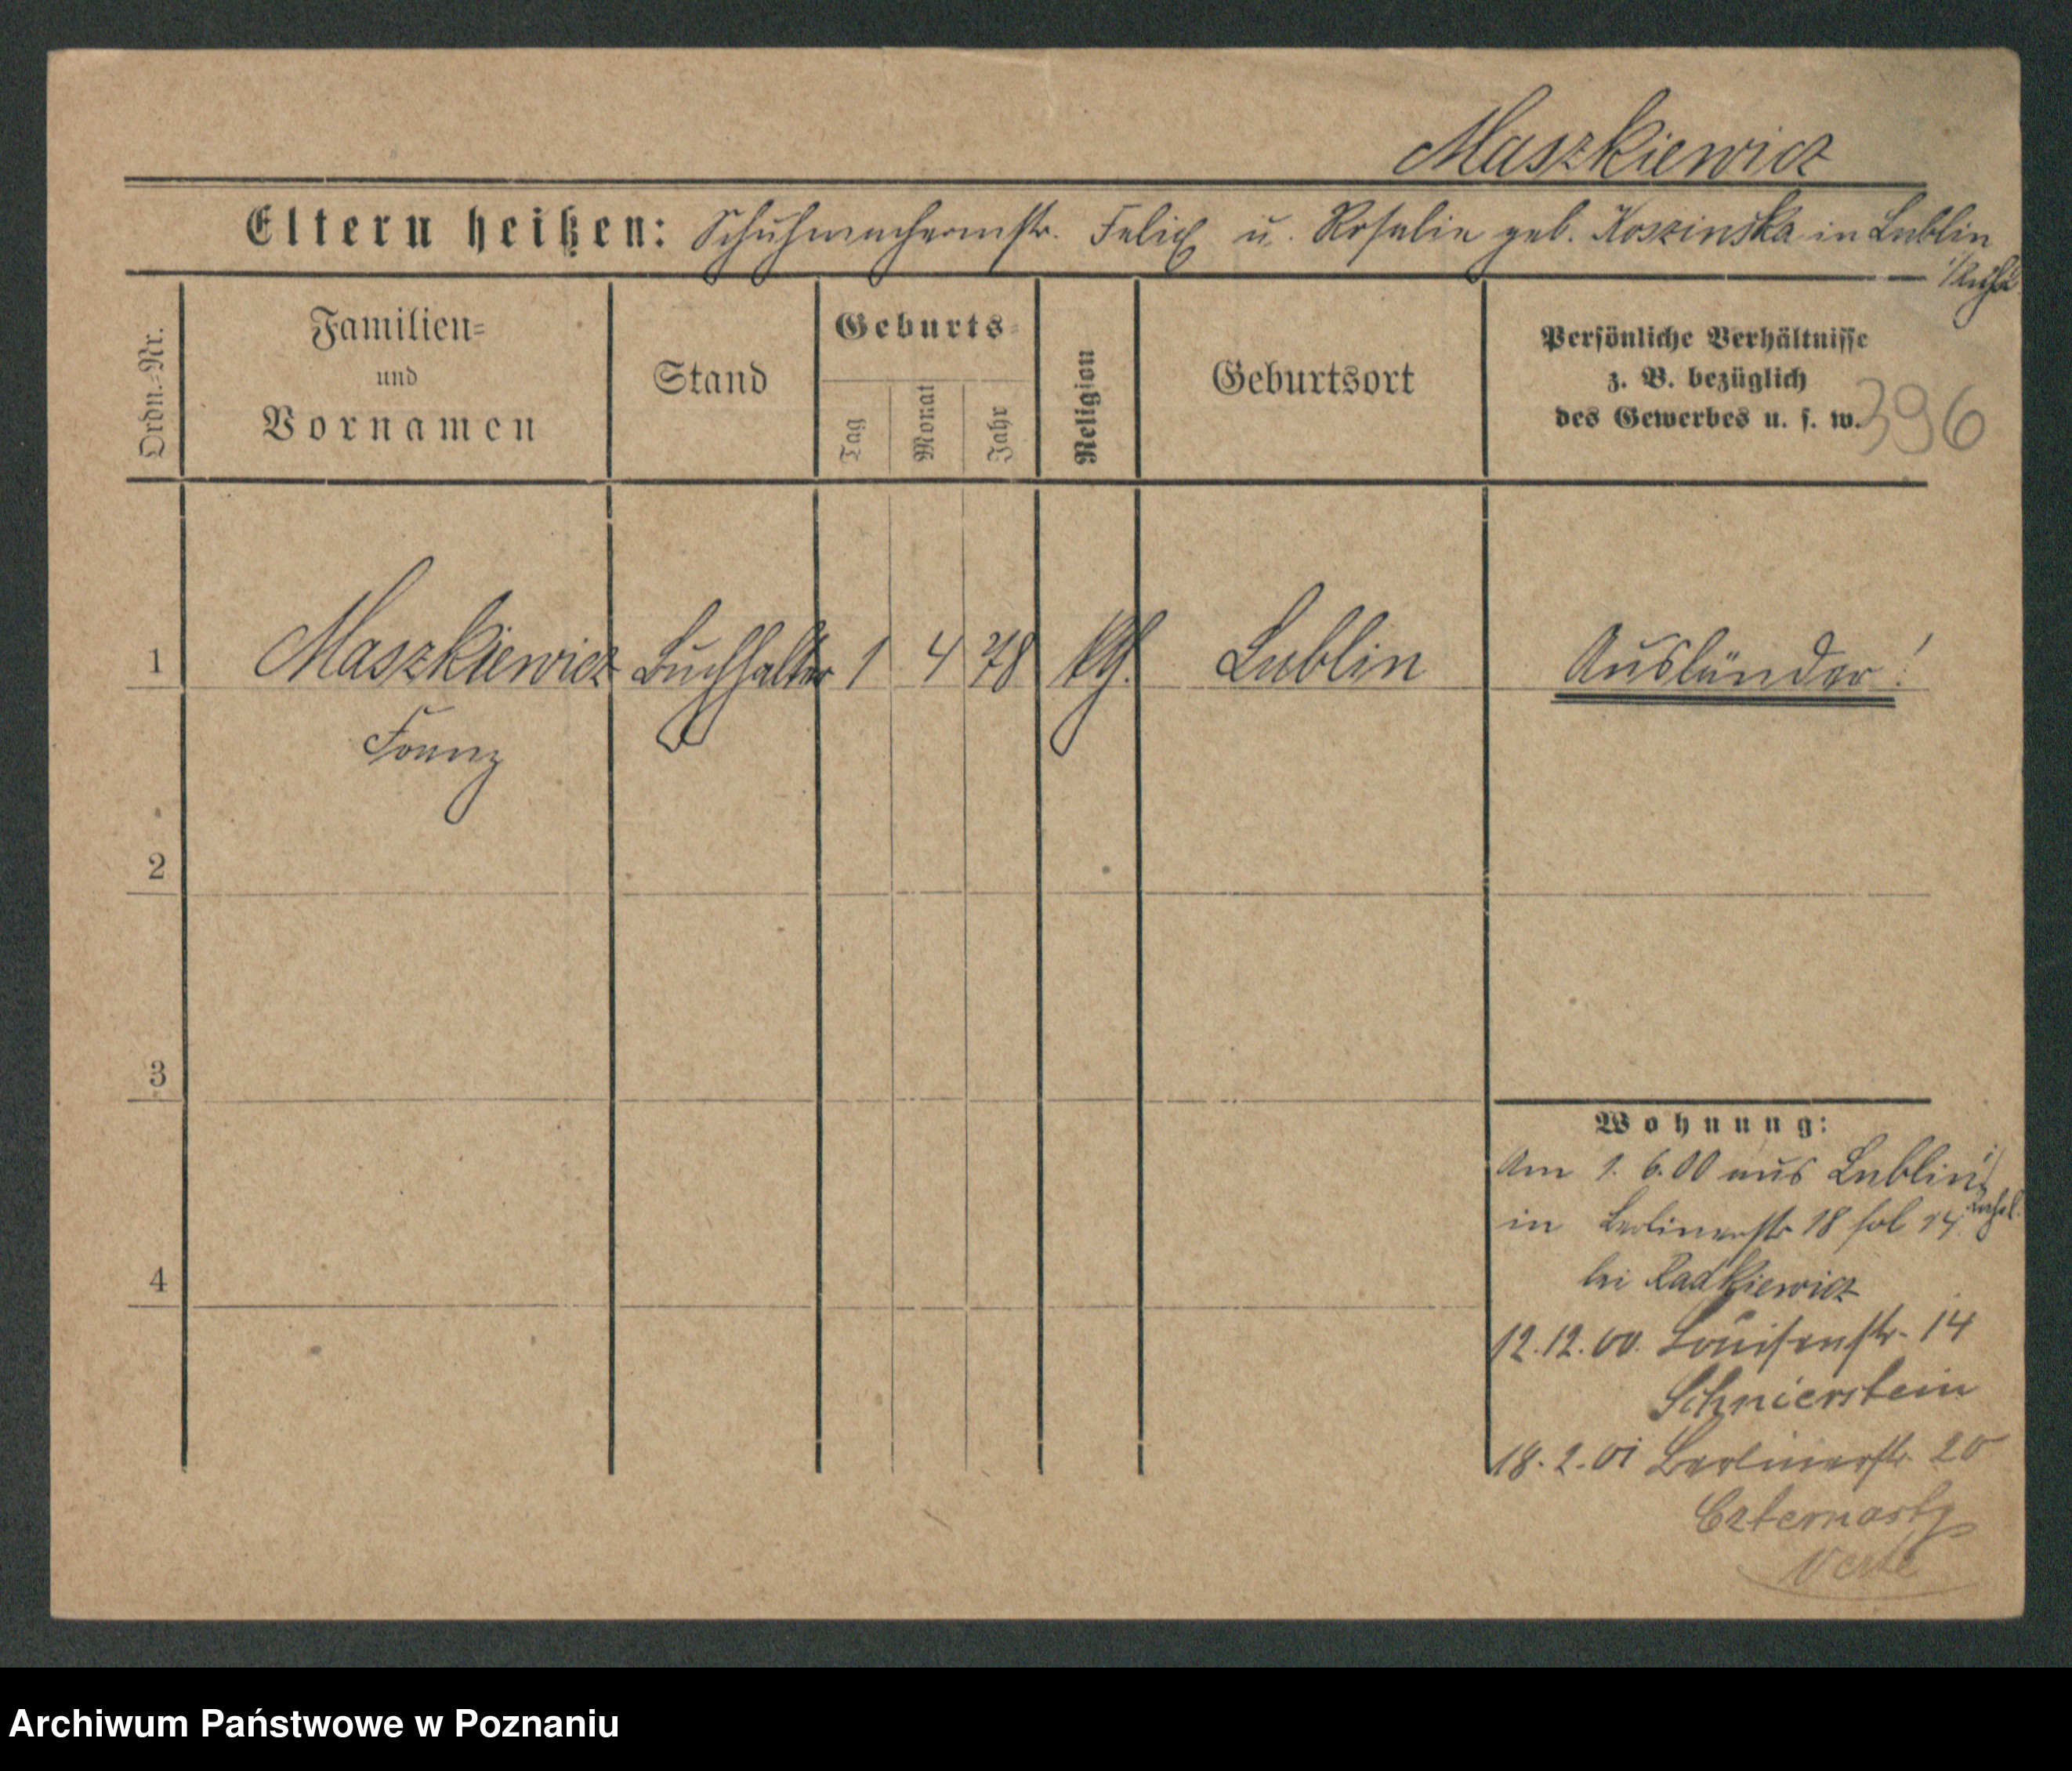 Maszkiewicz
Eltern heißen: Schuhmachermstr. Felix u. Rosalie geb. Koszinska in Lublin
Ordn.-Nr.
Familien-
und
Vornamen
Stand
Geburts-
Tag
Monat
Jahr
Religion
Geburtsort
Persönliche Verhältnisse
z. B. bezüglich
des Gewerbes u. s. w.
396
1 Maszkiewicz Buchhalter 1 4 78 kth. Lublin Ausländer!
Franz
2
3
4
Wohnung:
Am 1. 6. 00 aus Lublin
in Berlinerstr 18
bei Radkiewicz
12.12.00. Louisenstr. 14
Schnierstein
18.2.01 Berlinerstr. 20
Verte
Archiwum Państwowe w Poznaniu